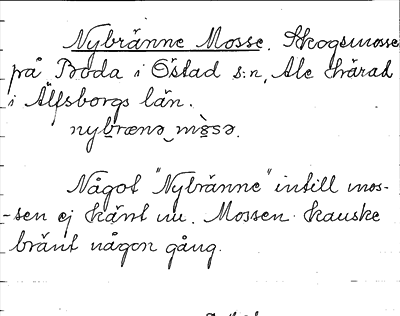 Nybränne Mosse. Skogsmosse
på Boda i Östad s:n, Ale härad
i Älfsborgs län.
nybrænə mɷ̀sə.
Något "Nybränne" intill mos-
-sen ej känt nu. Mossen kanske
bränt någon gång.